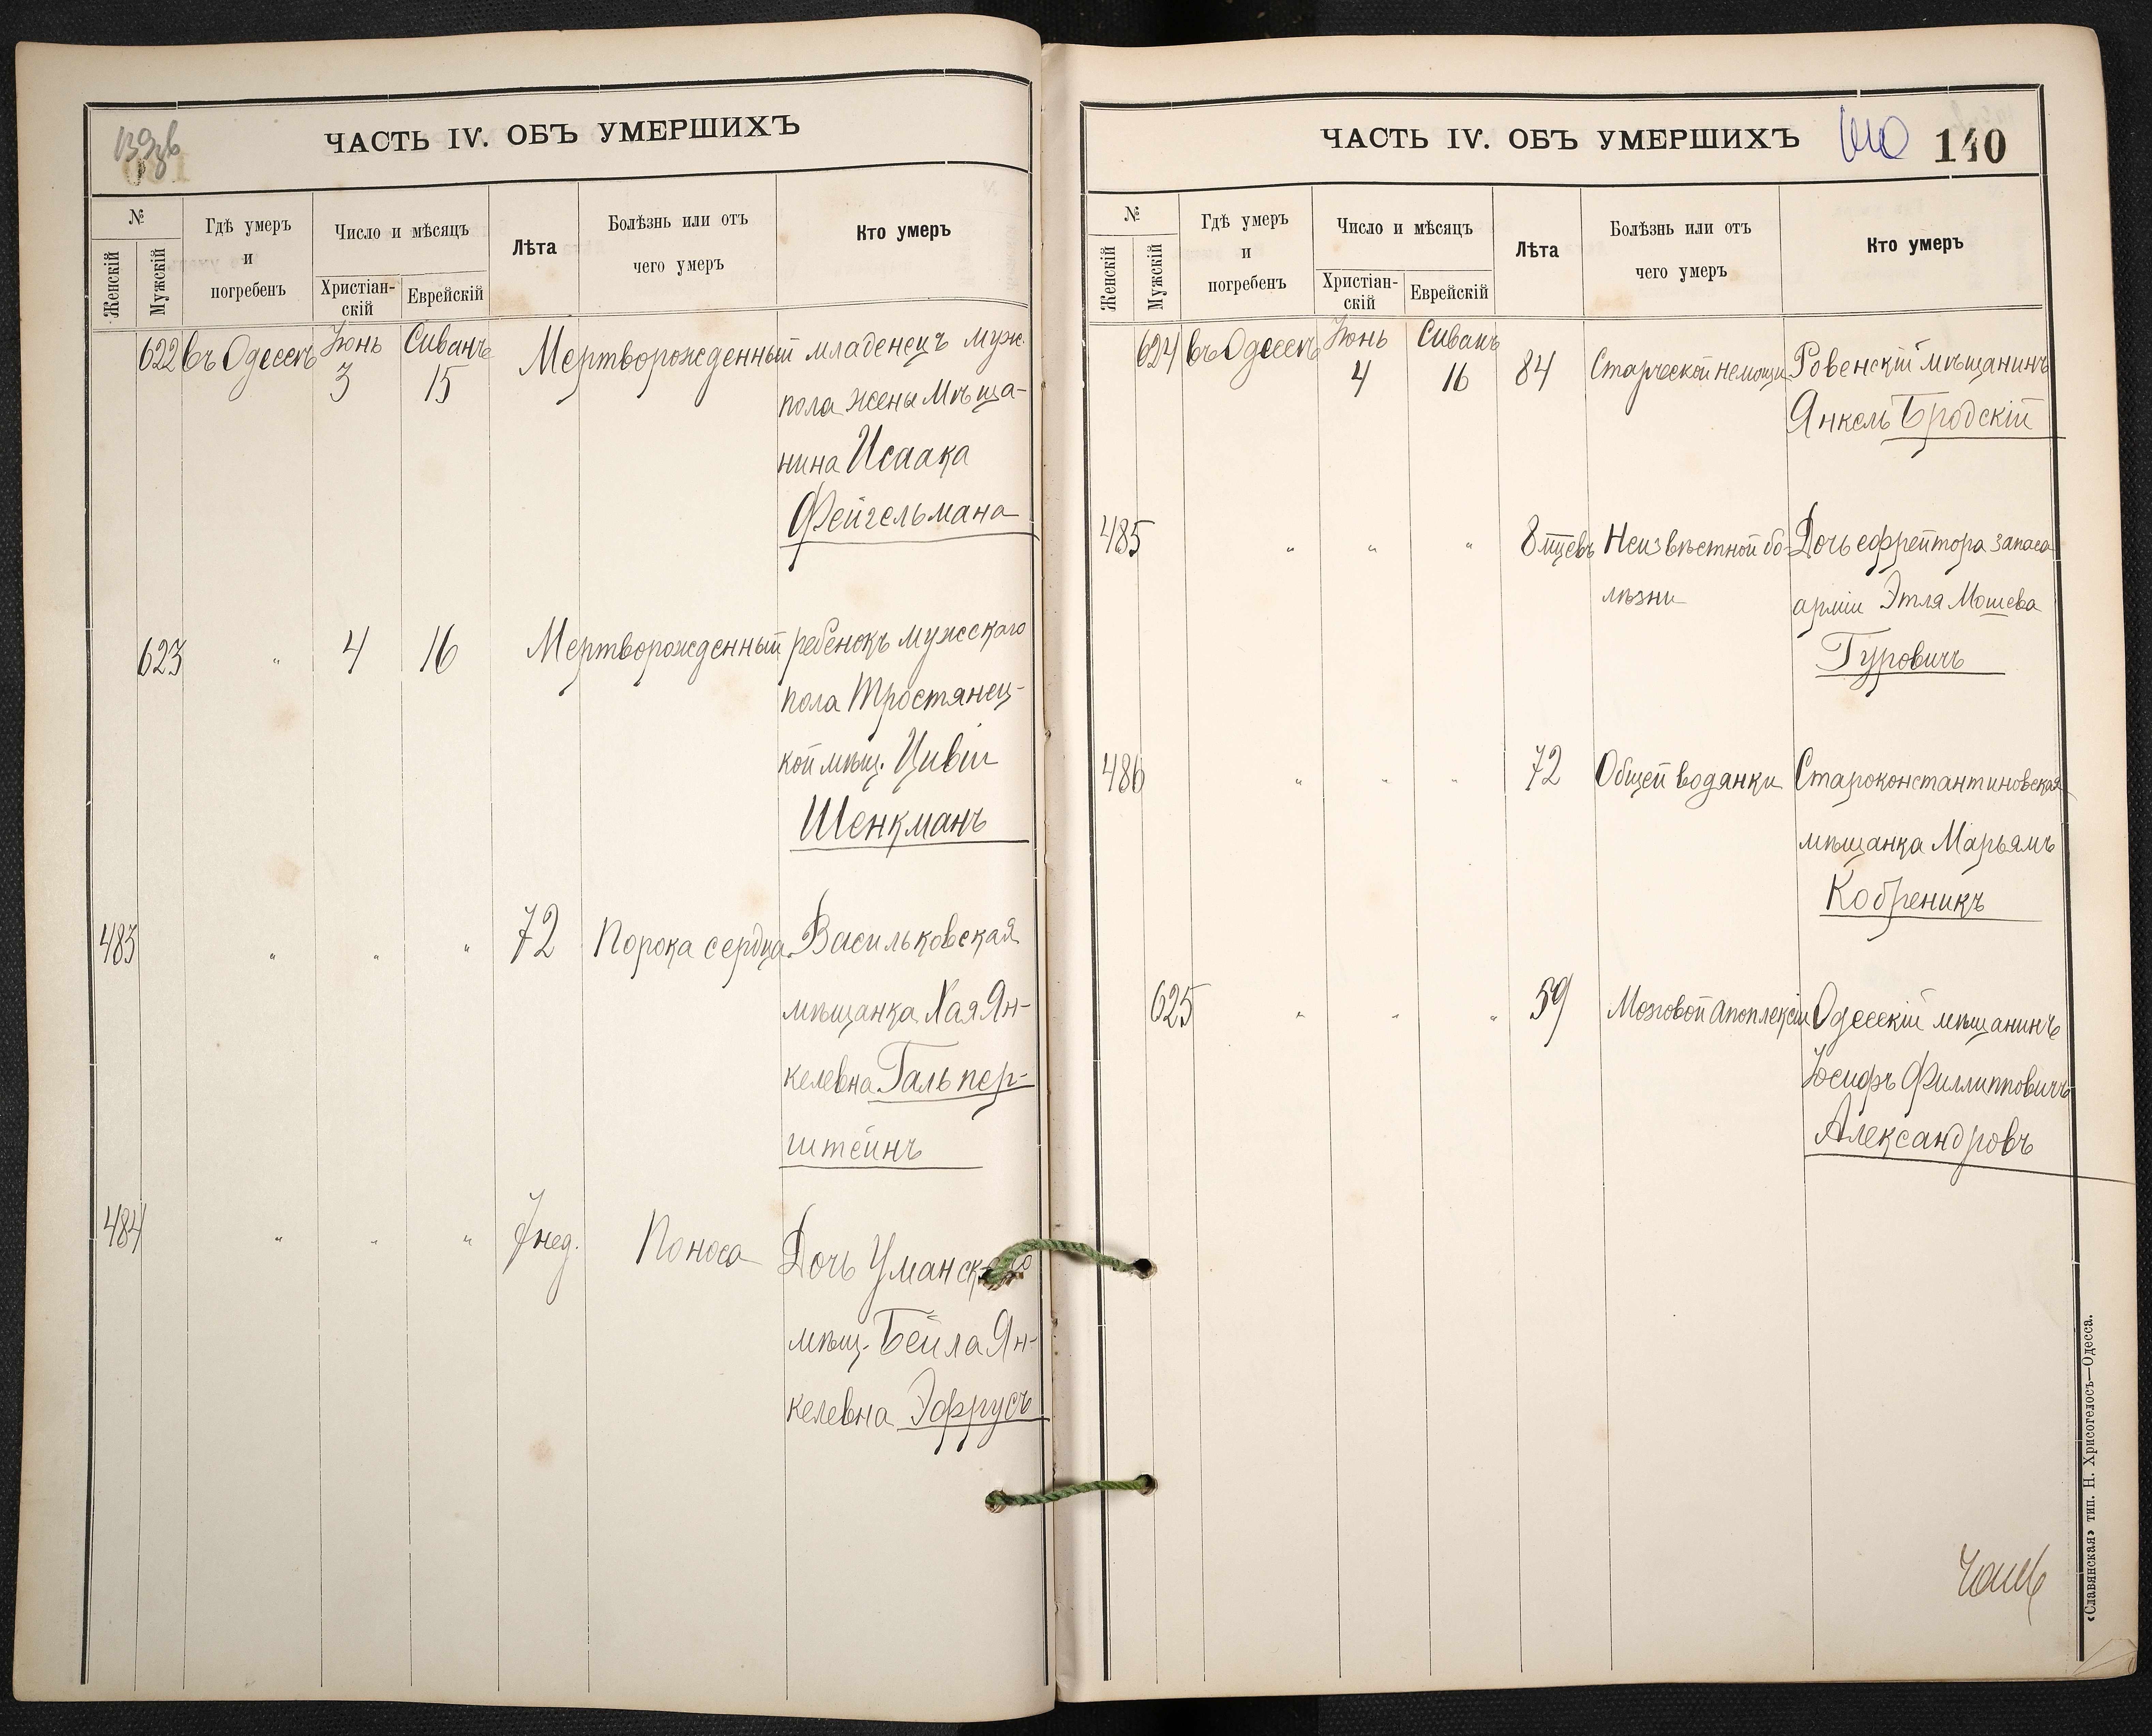 139 об
ЧАСТЬ IV. ОБЪ УМЕРШИХЪ
№
Женскій
Мужскій
Гдѣ умеръ
и
погребенъ
Число и мѣсяцъ
Христіан-
скій
Еврейскій
Лѣта
Болѣзнь или отъ
чего умеръ
Кто умеръ
622 въ Одессѣ Іюнь 3 Сиванъ 15 Мертворожденный младенецъ муж.
пола жены Мѣща-
нина Исаака
Фейгельмана
623 " 4 16 Мертворожденный ребенокъ мужскаго
пола Тростянец-
кой мѣщ. Цивіи
Шенкманъ
483 " " " 72 Порока сердца Васильковская
мѣщанка Хая Ян-
келевна Гальпер-
штейнъ
484 " " " 7 нед. Поноса Дочь Уманскаго
мѣщ. Бейла Ян-
келевна Эфрусъ
ЧАСТЬ IV. ОБЪ УМЕРШИХЪ
140
140
№
Женскій
Мужскій
Гдѣ умеръ
и
погребенъ
Число и мѣсяцъ
Христіан-
скій
Еврейскій
Лѣта
Болѣзнь или отъ
чего умеръ
Кто умеръ
624 въ Одессѣ Іюнь 4 Сиванъ 16 84 Старческой немощи Ровенскій мѣщанинъ
Янкель Бродскій
485 " " " 8 мѣцевъ Неизвѣстной бо- Дочь ефрейтора запаса
лѣзни арміи Этля Мошева
Гуровичъ
486 " " " 72 Общей водянки Староконстантиновская
мѣщанка Марьямъ
Кобреникъ
625 " " " 59 Мозговой апоплексіи Одесскій мѣщанинъ
Іосифъ Филлипповичъ
Александровъ
«Славянская» тип. Н. Хрисогелосъ—Одесса.